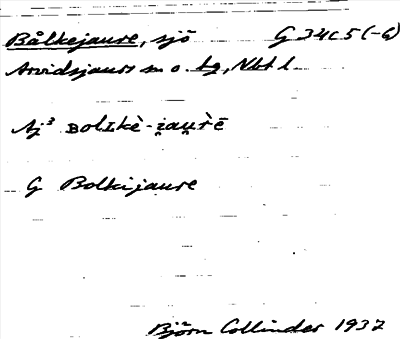 Bålkejaure, sjö G 34c5(-6)
Arvidsjaurs sn o. tg, Nbt l.
Aj³ ʙolᴌkè-i̯au̯r̀ē
G Bolkijaure
Björn Collinder 1937